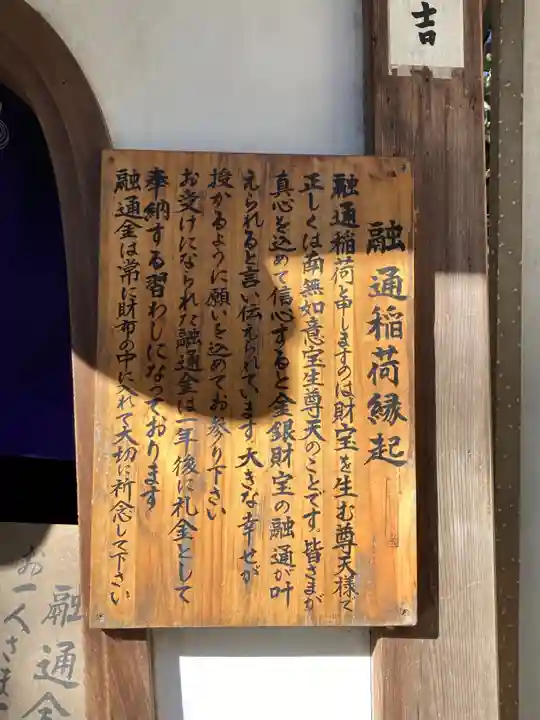 吉
融通稲荷縁起
融通稲荷と申しますのは財宝を生む尊天様で
正しくは南無如意宝生尊天のことです。皆さまが
真心を込めて信心すると金銀財宝の融通が叶
えられると言い伝えられています大きな幸せが
授かるように願いを込めてお参り下さい
お受けになられた融通金は一年後に礼金として
奉納する習わしになっております
融通金は常に財布の中に入れて大切に祈念して下さい
融通金
お一人さま